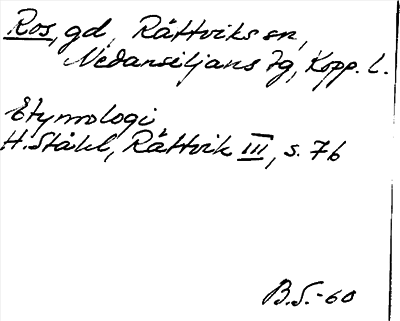 Ros, gd, Rättviks sn,
Nedansiljans tg, Kopp. l.
Etymologi
H. Ståhl, Rättvik III, s. 76
B.S.-60